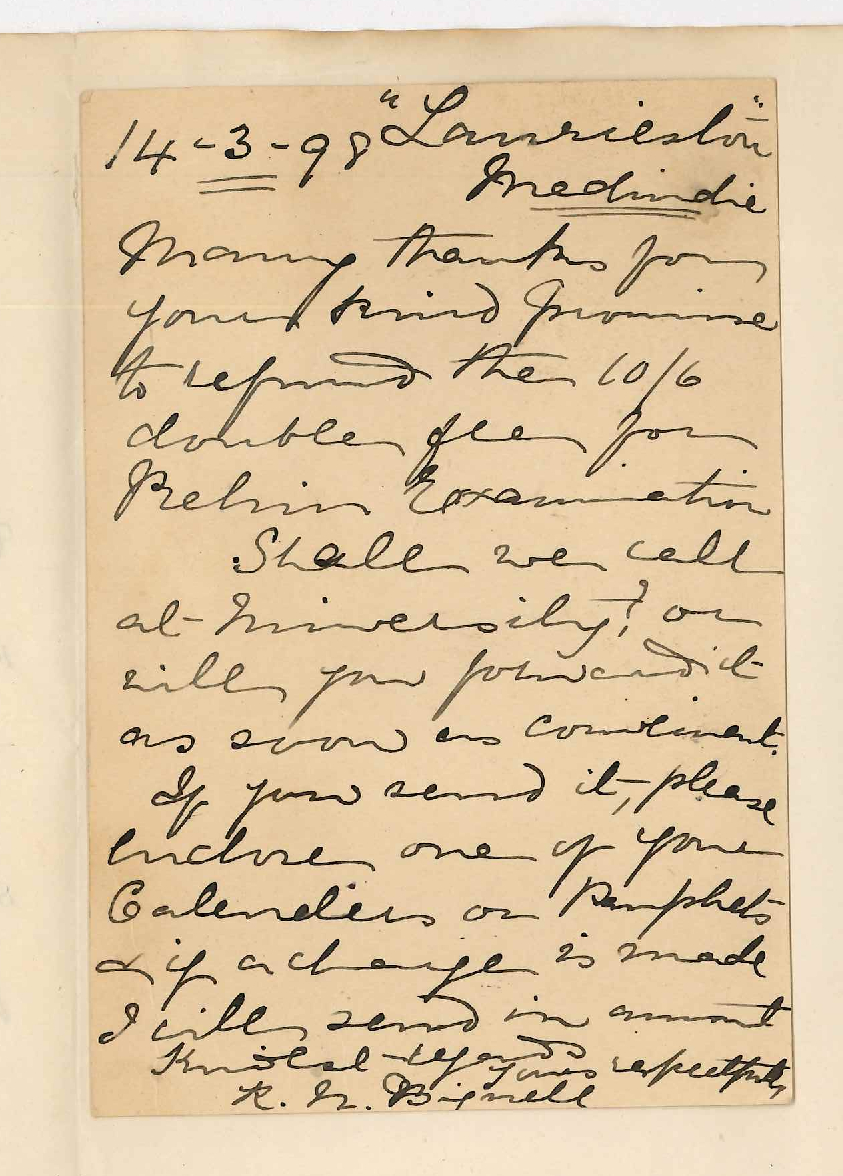 14-3-98 "Laurieston"
Medindie
Many thanks for
your kind promise
to refund the 10/6
double fee for
Prelim Examination
Shall we call
at University? or
will you forward it
as soon as convenient.
If you send it, please
enclose one of your
Calenders or Pamphets
& if a charge is made
I will send in amount
Kindest regards
yours respectfully
R. N. Bignell